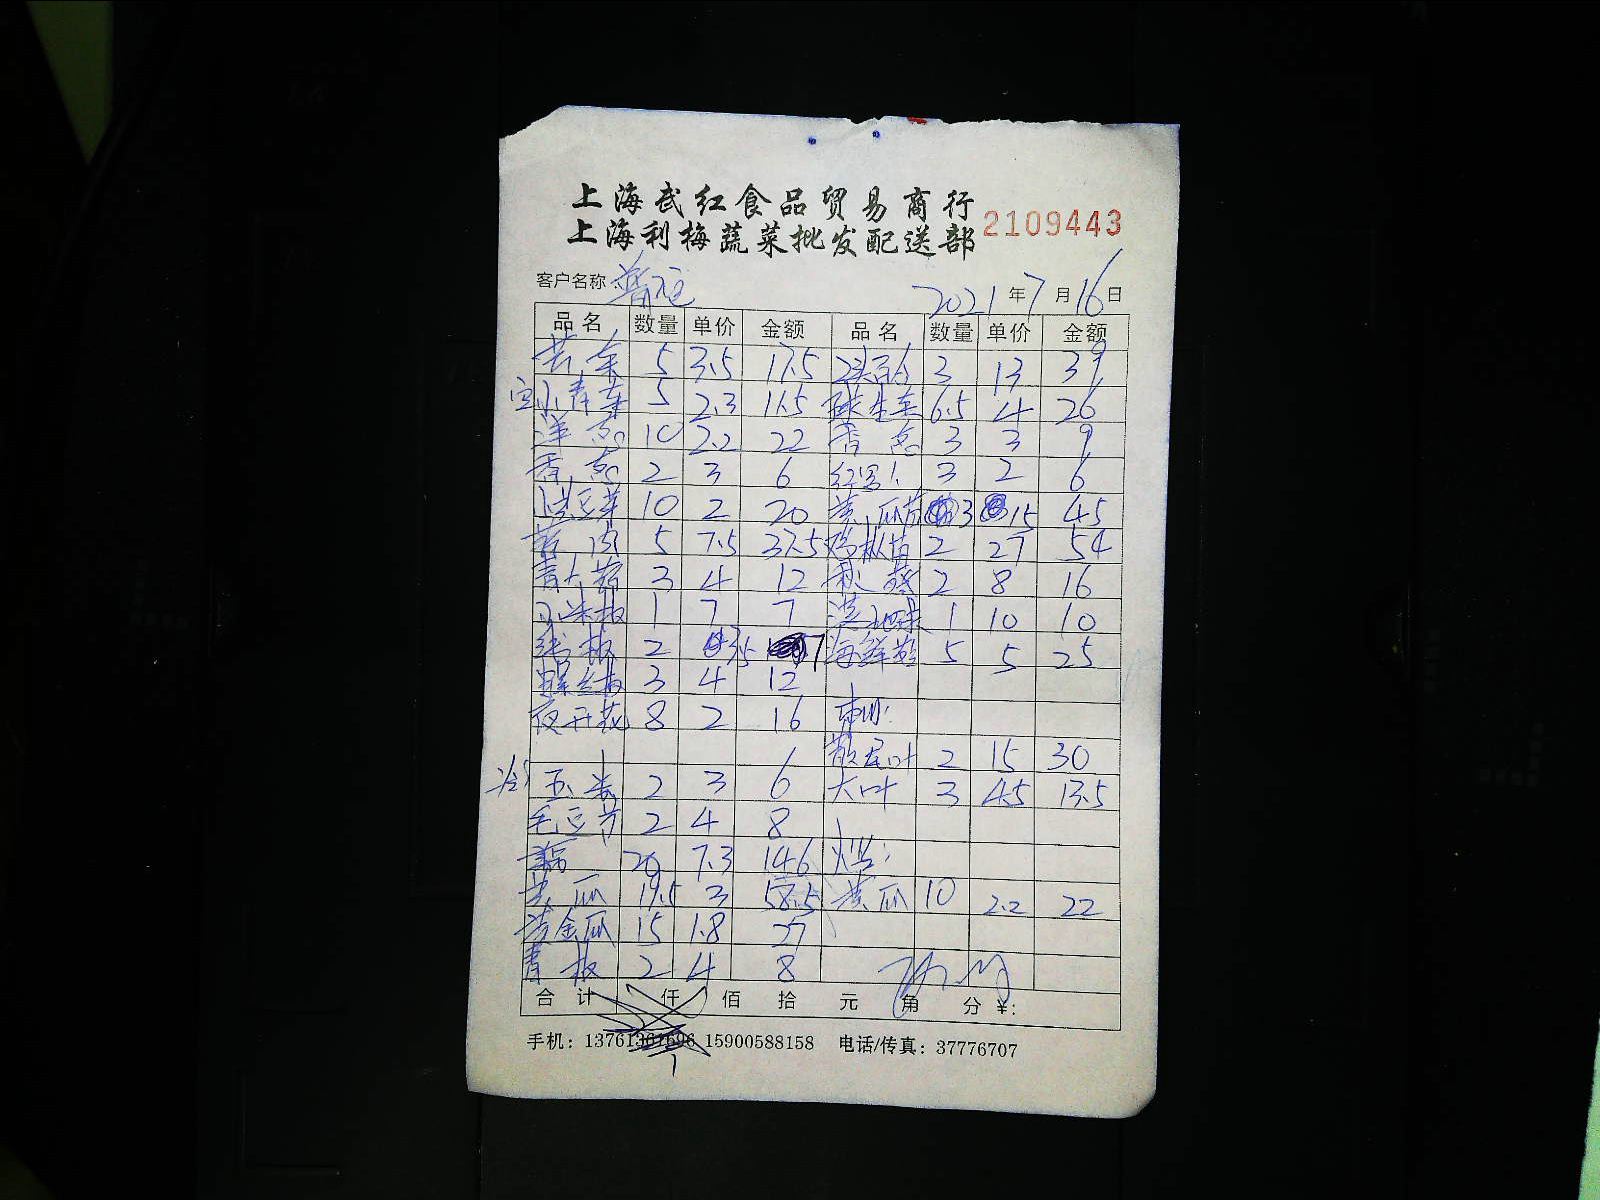 上海武红食品贸易商行
上海利梅蔬菜批发配送部 2109443
客户名称: 2021年7月16日
品名 数量 单价 金额 品名 数量 单价 金额
5 3.5 17.5 3 13 39
小青菜 5 2.3 11.5 球生菜 6.5 4 26
洋葱 10 2.2 22 香葱 3 3 9
香葱 2 3 6 3 2 6
黄豆芽 10 2 20 黄瓜 3 15 45
5 7.5 37.5 2 27 54
3 4 12 秋葵 2 8 16
小米椒 1 7 7 1 10 10
2 3.5 7 海鲜菇 5 5 25
螺丝椒 3 4 12
夜开花 8 2 16
6 2 15 30
玉米 2 3 6 大叶 3 4.5 13.5
毛豆节 2 4 8
20 7.3 146
黄瓜 19.5 3 58.5 黄瓜 10 2.2 22
黄金瓜 15 1.8 27
青椒 2 4 8
合计 仟 佰 拾 元 角 分 ¥:
手机: 13761361696 15900588158 电话/传真: 37776707